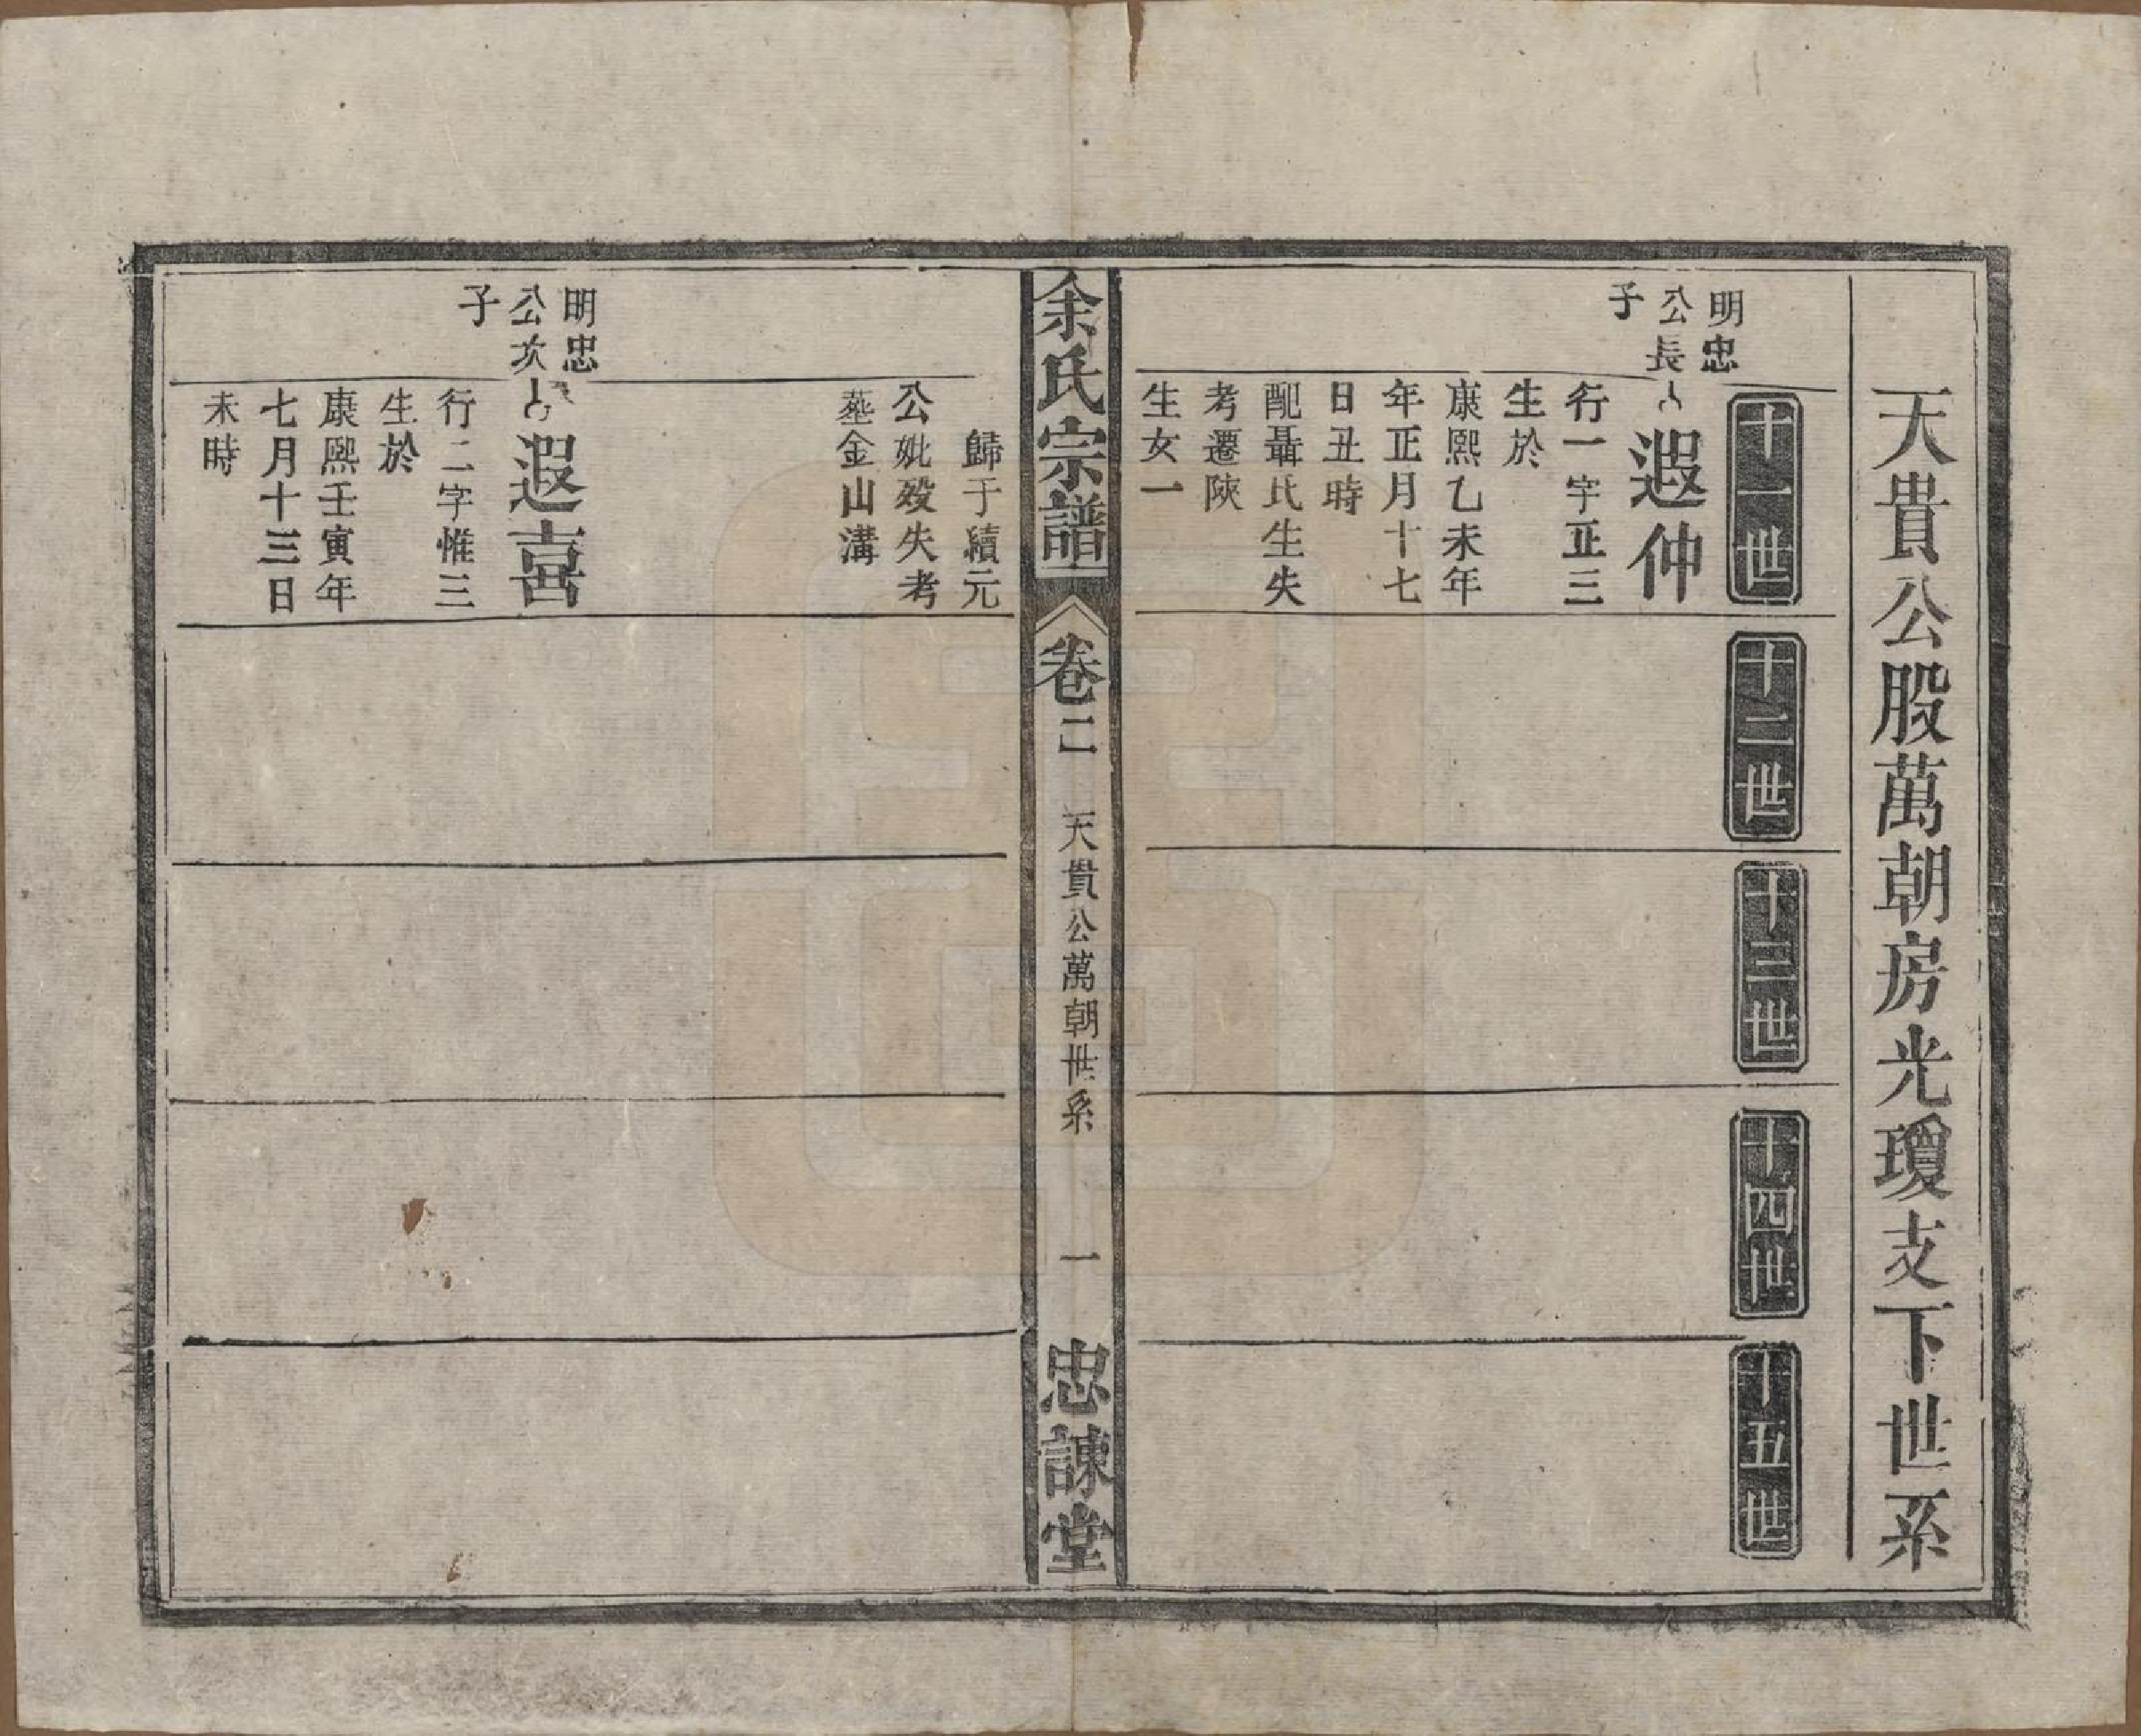 天貴公股萬朝房光瓊支下世系
十一世
十二世
十三世
十四世
十五世
明忠
公長
子
遐仲
行一字正三
生於
康熙乙未年
年正月十七
日丑時
配聶氏生失
考遷陝
生女一
余氏宗譜
卷二
天貴公萬朝世系
一
忠諫堂
歸于續元
公妣歿失考
墓金山溝
明忠
公次
子
遐喜
行二字惟三
生於
康熙壬寅年
七月十三日
未時